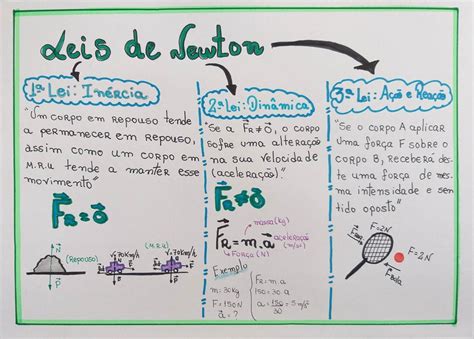 Leis de Newton
1ª Lei: Inércia
"Um corpo em repouso tende
a permanecer em repouso,
assim como um corpo em
M.R.U tende a manter esse
movimento"
F⃗R = 0⃗
N⃗
(Repouso)
P⃗
(M.R.U)
v⃗=70Km/h
v⃗=70Km/h
P⃗
2ª Lei: Dinâmica
"Se a F⃗R ≠ 0⃗, o corpo
sofre uma alteração
na sua velocidade
(aceleração)."
F⃗R ≠ 0⃗
massa (kg)
F⃗R = m.a⃗
aceleração
(m/s²)
Força (N)
Exemplo
m=30kg
F=150N
a=?
FR = m.a
150=30.a
a = 150/30 = 5 m/s²
3ª Lei: Ação e Reação
"Se o corpo A aplicar
uma força F sobre o
corpo B, receberá des-
te uma força de mes-
ma intensidade e sen-
tido oposto"
F=2N
F=2N
Bola